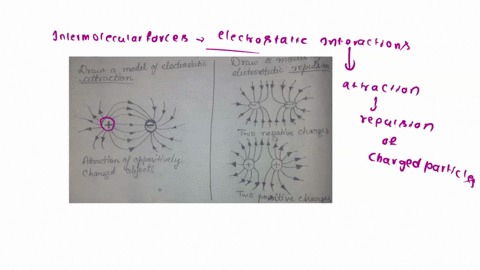 Intermolecular forces → electrostatic Interactions
attraction
repulsion
of
charged particles
Draw a model of electrostatic
attraction
+
−
Attraction of oppositively
charged objects
Draw a model
electrostatic repulsion
− −
Two negative charges
+ +
Two positive charges